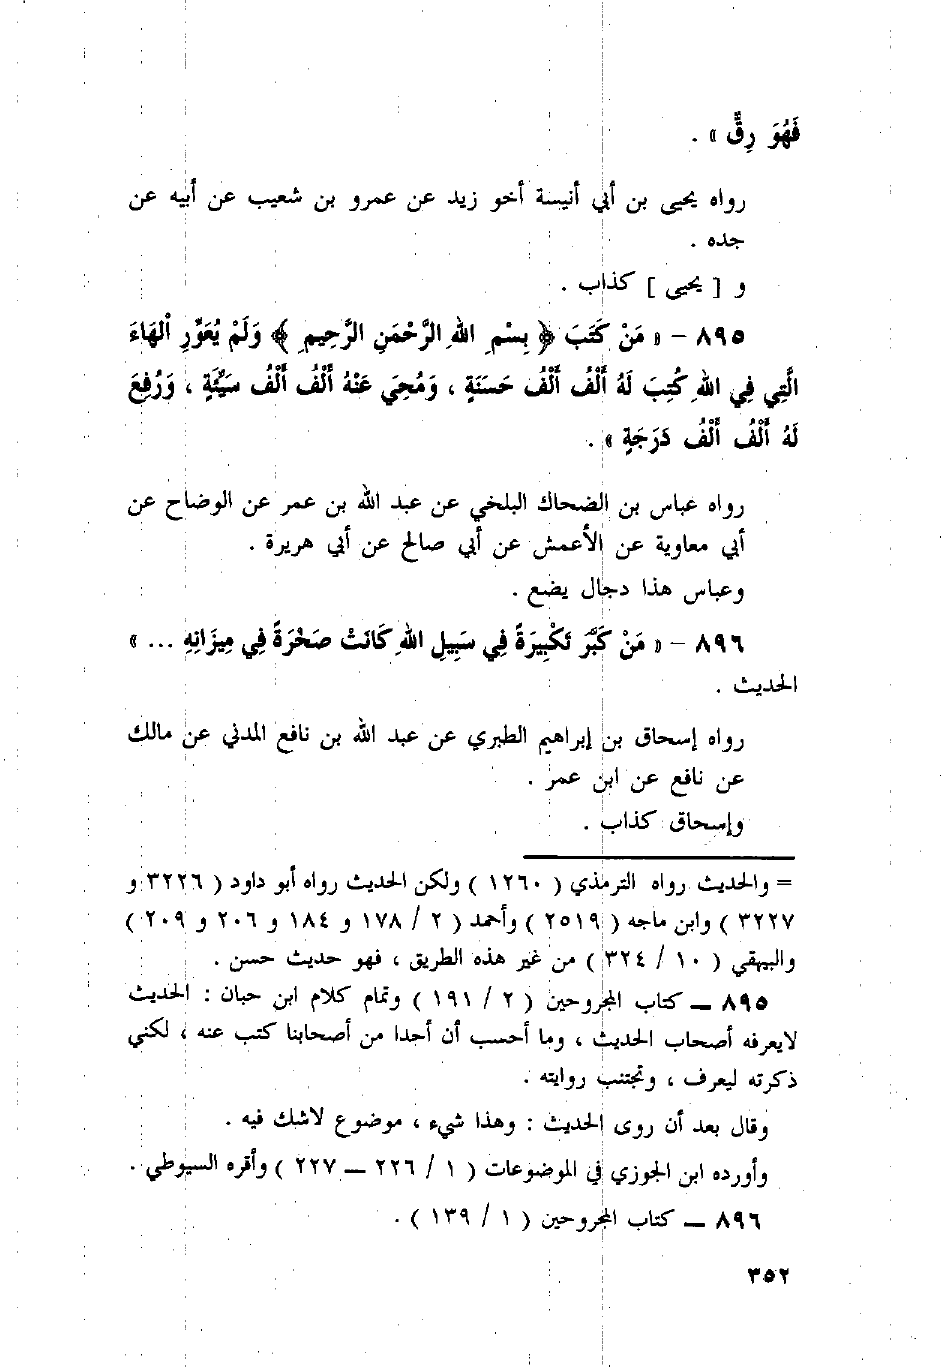 فَهُوَ رِقٌّ » .
رواه يحيى بن أبي أنيسة أخو زيد عن عمرو بن شعيب عن أبيه عن
جده .
و [ يحيى ] كذاب .
٨٩٥ – « مَنْ كَتَبَ ﴿ بِسْمِ اللهِ الرَّحْمَنِ الرَّحِيمِ ﴾ وَلَمْ يُعَوِّرِ الْهَاءَ
الَّتِي فِي اللهِ كُتِبَ لَهُ أَلْفُ أَلْفُ حَسَنَةٍ ، وَمُحِيَ عَنْهُ أَلْفُ أَلْفُ سَيِّئَةٍ ، وَرُفِعَ
لَهُ أَلْفُ أَلْفُ دَرَجَةٍ » .
رواه عباس بن الضحاك البلخي عن عبد الله بن عمر عن الوضاح عن
أبي معاوية عن الأعمش عن أبي صالح عن أبي هريرة .
وعباس هذا دجال يضع .
٨٩٦ – « مَنْ كَبَّرَ تَكْبِيرَةً فِي سَبِيلِ اللهِ كَانَتْ صَخْرَةً فِي مِيزَانِهِ ... »
الحديث .
رواه إسحاق بن إبراهيم الطبري عن عبد الله بن نافع المدني عن مالك
عن نافع عن ابن عمر .
وإسحاق كذاب .
= والحديث رواه الترمذي ( ١٢٦٠ ) ولكن الحديث رواه أبو داود ( ٣٢٢٦ و
٣٢٢٧ ) وابن ماجه ( ٢٥١٩ ) وأحمد ( ٢ / ١٧٨ و ١٨٤ و ٢٠٦ و ٢٠٩ )
والبيهقي ( ١٠ / ٣٢٤ ) من غير هذه الطريق ، فهو حديث حسن .
٨٩٥ – كتاب المجروحين ( ٢ / ١٩١ ) وتمام كلام ابن حبان : الحديث
لايعرفه أصحاب الحديث ، وما أحسب أن أحدا من أصحابنا كتب عنه ، لكني
ذكرته ليعرف ، وتجتنب روايته .
وقال بعد أن روى الحديث : وهذا شيء ، موضوع لاشك فيه .
وأورده ابن الجوزي في الموضوعات ( ١ / ٢٢٦ – ٢٢٧ ) وأقره السيوطي .
٨٩٦ – كتاب المجروحين ( ١ / ١٣٩ ) .
٣٥٢